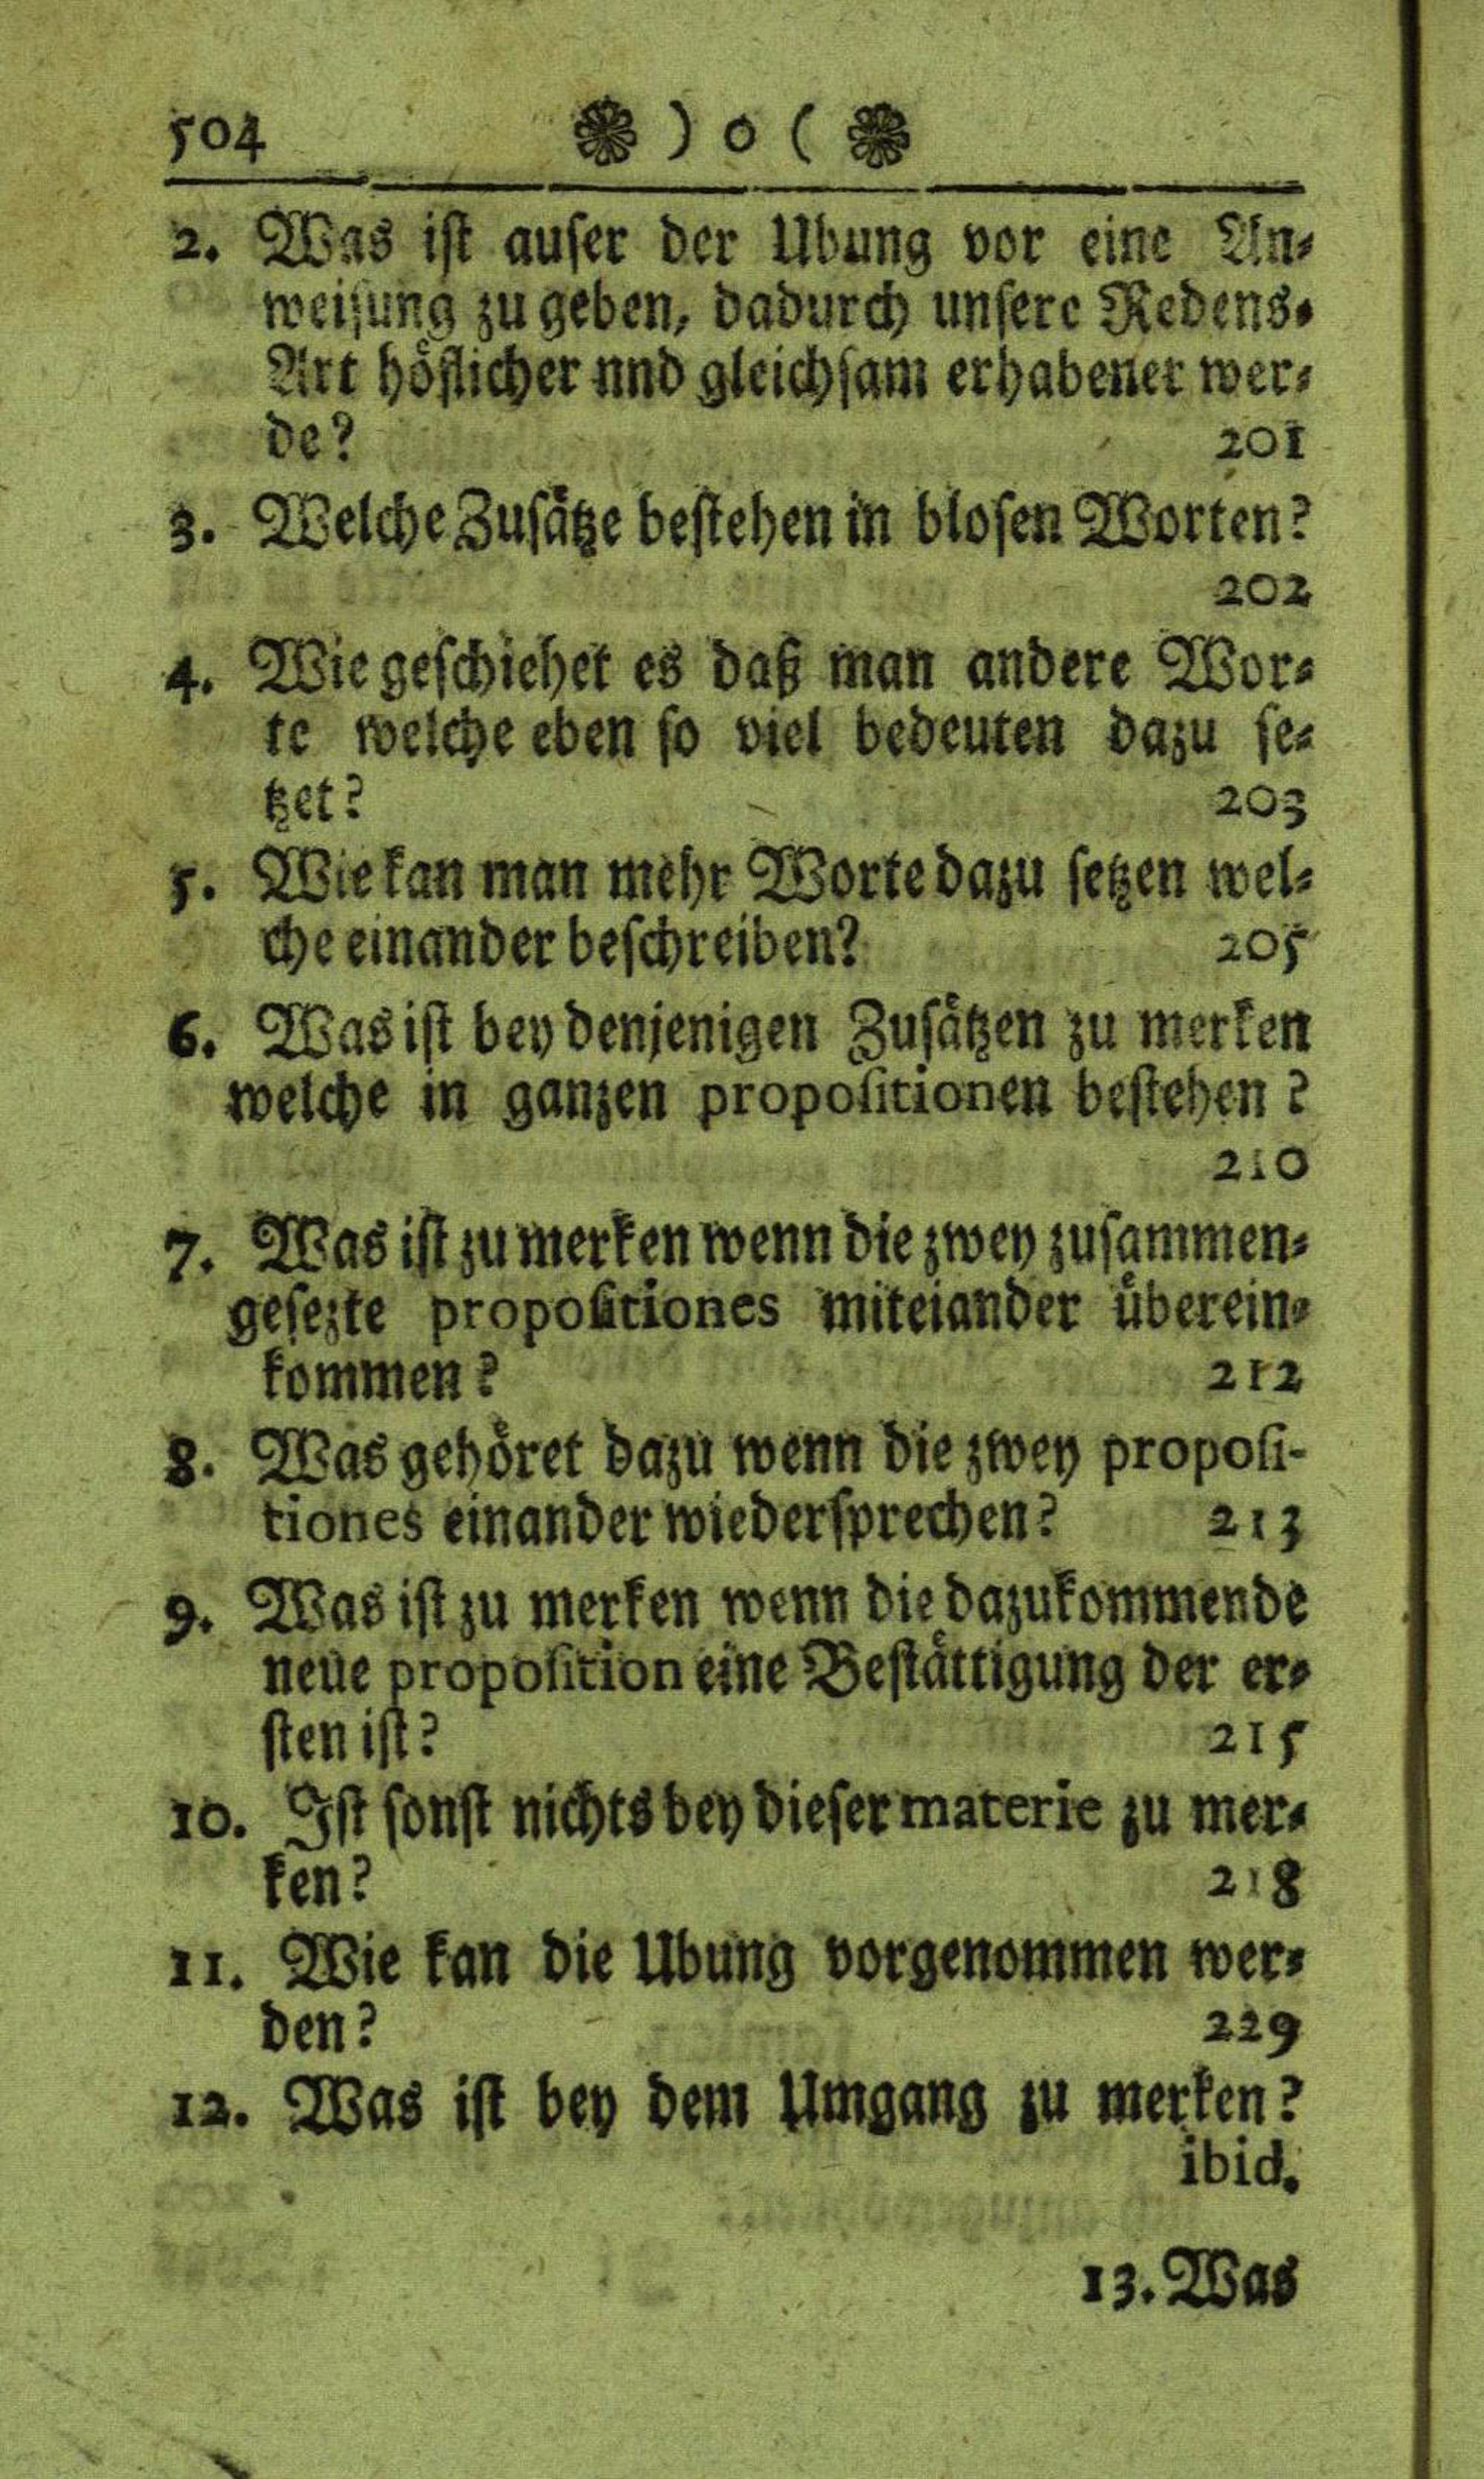 504 ❁ ) o ( ❁
2. Was iſt auſer der Ubung vor eine An-
weiſung zu geben, dadurch unſere Redens-
Art hoͤflicher nnd gleichſam erhabener wer-
de? 201
3. Welche Zuſaͤtze beſtehen in bloſen Worten?
202
4. Wie geſchiehet es daß man andere Wor-
te welche eben ſo viel bedeuten dazu ſe-
tzet? 203
5. Wie kan man mehr Worte dazu ſetzen wel-
che einander beſchreiben? 205
6. Was iſt bey denjenigen Zuſaͤtzen zu merken
welche in ganzen propoſitionen beſtehen?
210
7. Was iſt zu merken wenn die zwey zuſammen-
geſezte propoſitiones miteiander uͤberein-
kommen? 212
8. Was gehoͤret dazu wenn die zwey propoſi-
tiones einander wiederſprechen? 213
9. Was iſt zu merken wenn die dazukommende
neue propoſition eine Beſtaͤttigung der er-
ſten iſt? 215
10. Iſt ſonſt nichts bey dieſer materie zu mer-
ken? 218
11. Wie kan die Ubung vorgenommen wer-
den? 229
12. Was iſt bey dem Umgang zu merken?
ibid.
13. Was